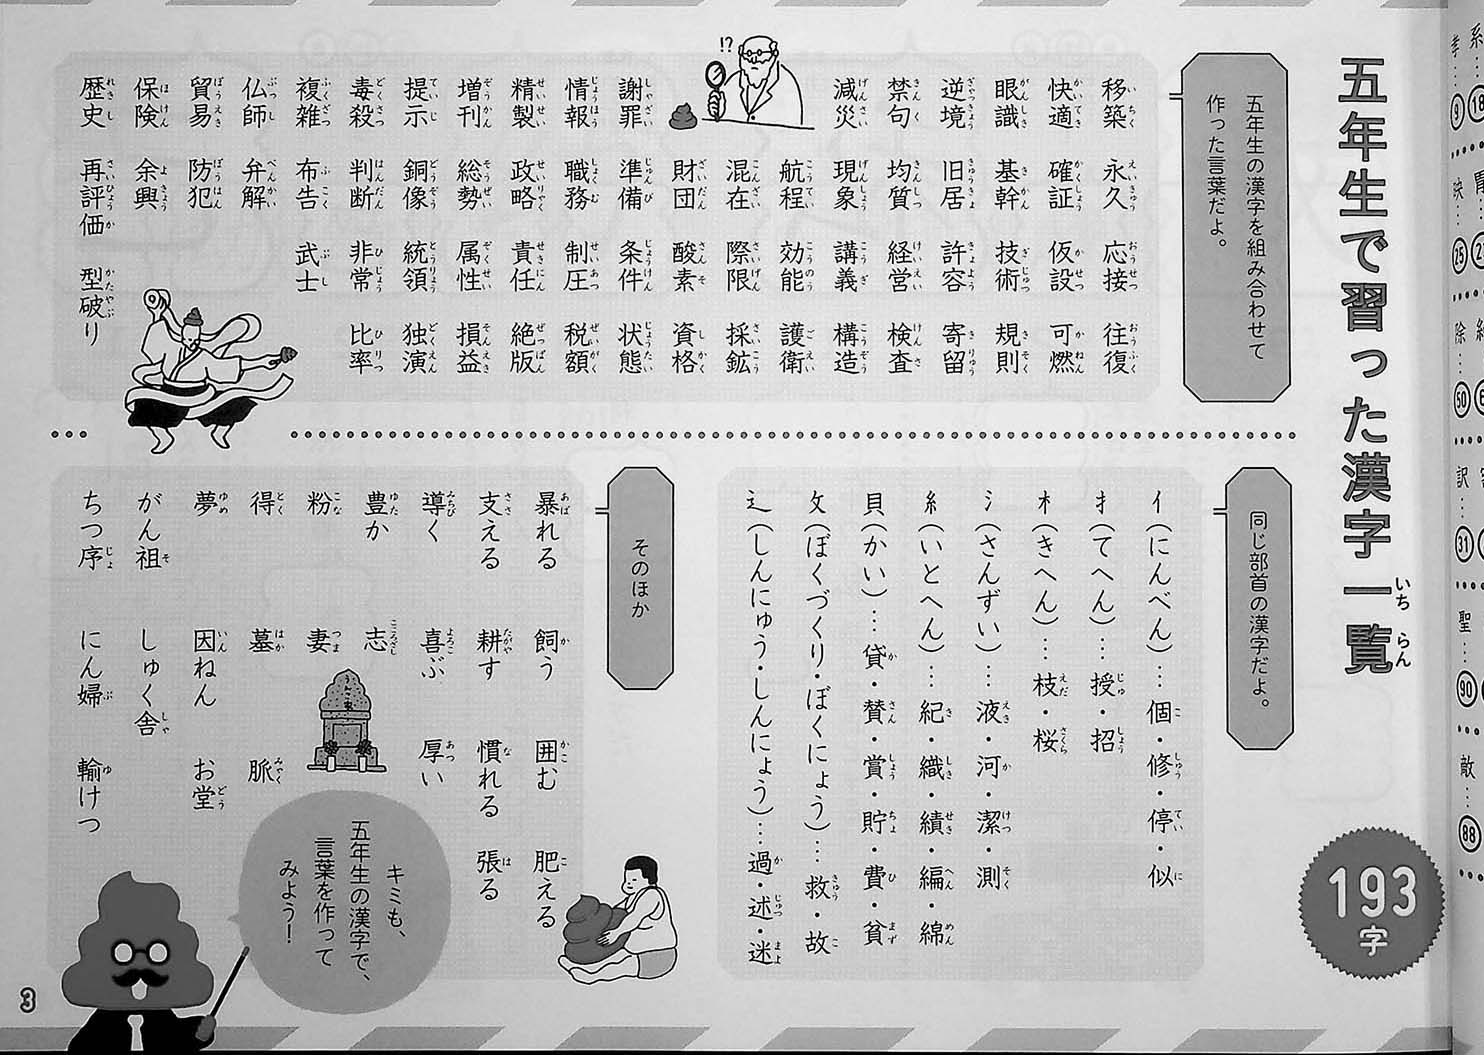 五年生で習った漢字一覧
いちらん
193字
五年生の漢字を組み合わせて
作った言葉だよ。
移築 永久 応接 往復
快適 確証 仮設 可燃
眼識 基幹 技術 規則
逆境 旧居 許容 寄留
禁句 均質 経営 検査
減災 現象 講義 構造
航程 効能 護衛
!?
混在 際限 採鉱
財団 酸素 資格
謝罪 準備 条件 状態
情報 職務 制圧 税額
精製 政略 責任 絶版
増刊 総勢 属性 損益
提示 銅像 統領 独演
毒殺 判断 非常 比率
複雑 布告 武士
仏師 弁解
貿易 防犯
保険 余興
歴史 再評価 型破り
同じ部首の漢字だよ。
亻(にんべん)…個・修・停・似
扌(てへん)…授・招
木(きへん)…枝・桜
氵(さんずい)…液・河・潔・測
糸(いとへん)…紀・織・績・編・綿
貝(かい)…貸・賛・賞・貯・費・貧
攵(ぼくづくり・ぼくにょう)…救・故
辶(しんにゅう・しんにょう)…過・述・迷
そのほか
暴れる 飼う 囲む 肥える
支える 耕す 慣れる 張る
導く 喜ぶ 厚い
豊か 志
粉 妻
得 墓 脈
夢 因ねん お堂
がん祖 しゅく舎
ちつ序 にん婦 輸けつ
キミも、
五年生の漢字で、
言葉を作って
みよう!
3